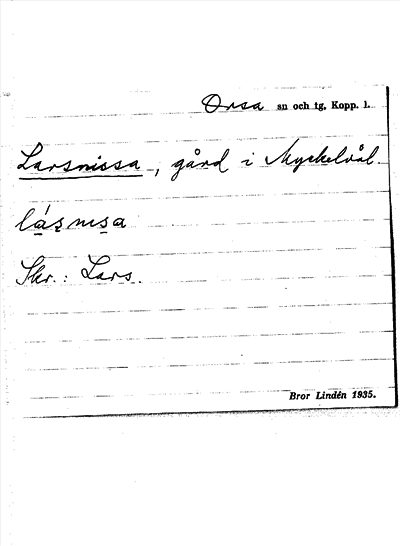 Orsa sn och tg, Kopp. l.
Larsnissa, gård i Myckelvål.
lásnısa
Skr.: Lars.
Bror Lindén 1935.